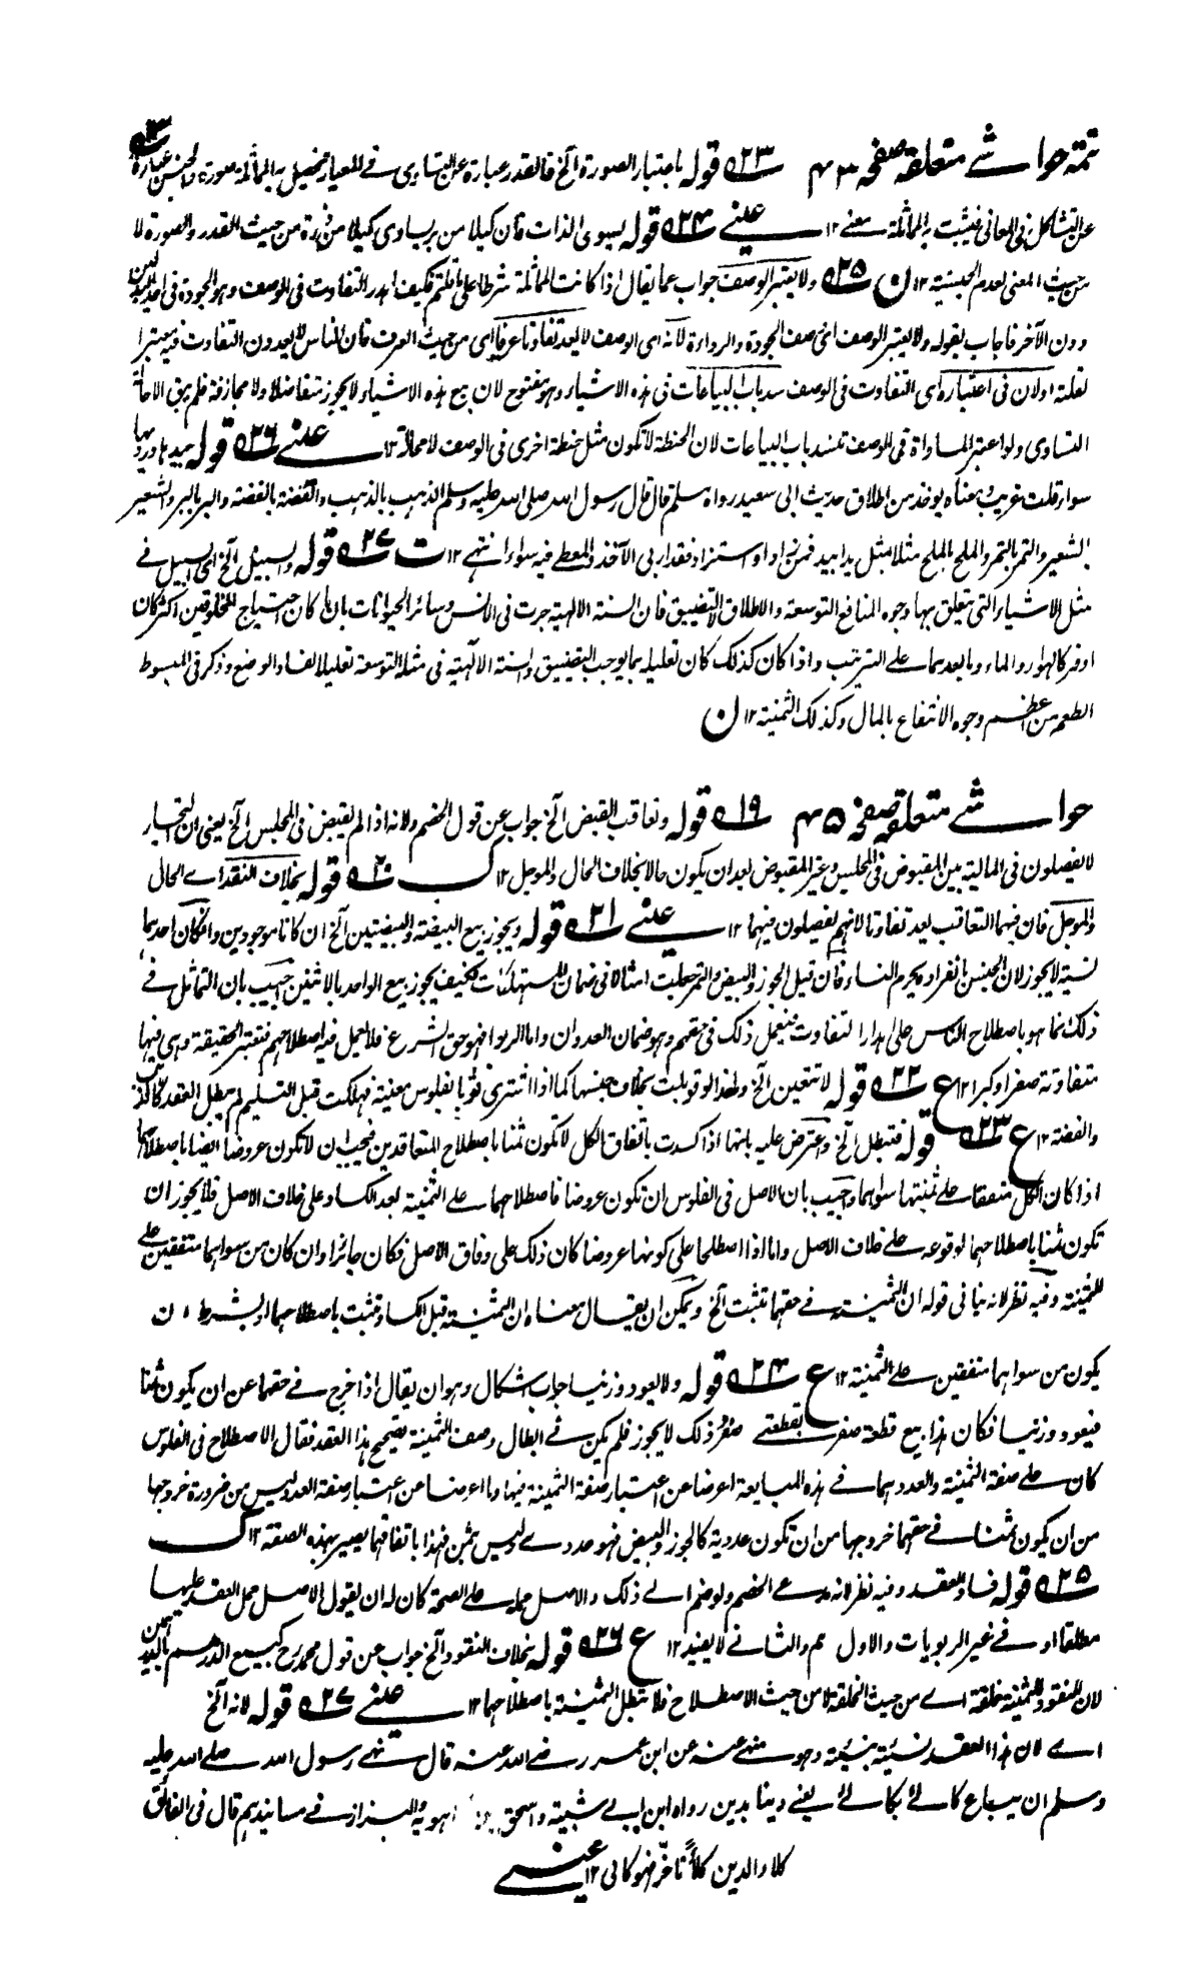 تتمة حواشے متعلقہ صفحہ ۴۳ ۲۳؎ قولہ باعتبار الصورة الخ فالقدر عبارة عن التساوی فے المعیار فیحصل بہ المماثلة صورة والجنس عبارة
عن التشاکل فی المعانی فیثبت بہ المماثلة معنے ۱۲ عینے ۲۴؎ قولہ یسوی الذات فان کیلا من بر یساوی کیلا من ذرة من حیث القدر والصورة لا
من حیث المعنی لعدم الجنسیة ۱۲ ن ۲۵؎ ولا یعتبر الوصف جواب عما یقال اذا کانت المماثلة شرطا علی ما قلتم فکیف اہدر التفاوت فی الوصف وہو الجودة فی احد البدلین
دون الآخر فاجاب بقولہ ولا یعتبر الوصف ای وصف الجودة والرداءة لانہ ای الوصف لا یعد تفاوتا عرفا ای من حیث العرف فان الناس لا یعدون التفاوت فیہ معتبرا
لقلتہ اولان فی اعتبارہ ای التفاوت فی الوصف سد باب البیاعات فی ہذہ الاشیاء وہو مفتوح لان بیع ہذہ الاشیاء لا یجوز متفاضلا ولا مجازفة فلم یبق الا حالة
التساوی ولو اعتبر المساواة فی الوصف تنسد باب البیاعات لان الحنطة لا تکون مثل حنطة اخری فی الوصف لا محالة ۱۲ عینے ۲۶؎ قولہ جیدہا وردیہا
سواء قلت غریب ومعناہ یوخذ من اطلاق حدیث ابی سعید رواہ مسلم قال قال رسول اللہ صلی اللہ علیہ وسلم الذہب بالذہب والفضة بالفضة والبر بالبر والشعیر
بالشعیر والتمر بالتمر والملح بالملح مثلا بمثل یدا بید فمن زاد او استزاد فقد اربی الآخذ والمعطے فیہ سواء انتہے ۱۲ ت ۲۷؎ قولہ والسبیل الخ ای السبیل فے
مثل الاشیاء التی یتعلق بہا وجوہ المنافع التوسعة والاطلاق لا التضییق فان السنة الالہیة جرت فی الانس وسائر الحیوانات بان ما کان احتیاج المخلوقین اکثر کان
اوفر کالہواء والماء وما بعدہما علے الترتیب واذا کان کذلک کان تعلیلہ بما یوجب التضییق والسنة الالٰہیة فی مثلہ التوسعة تعلیلا لفساد الوضع وذکر فی المبسوط
الطعم من اعظم وجوہ الانتفاع بالمال وکذلک الثمنیة ۱۲ ن
حواشے متعلقہ صفحہ ۴۵ ۱۹؎ قولہ وتعاقب القبض الخ جواب عن قول الخصم ولانہ اذا لم یقبض فی المجلس الخ یعنی ان التجار
لا یفصلون فی المالیة بین المقبوض فی المجلس وغیر المقبوض بعد ان یکون حالا بخلاف الحال والموجل ۱۲ ک ۲۰؎ قولہ بخلاف النقد اے الحالی
والموجل فان فیہما التعاقب یعد تفاوتا لانہم یفصلون فیہما ۱۲ عینے ۲۱؎ قولہ ویجوز بیع البیضة والبیضتین الخ ان کانا موجودین وان کان احدہما
نسیة لا یجوز لان الجنس بانفرادہ یحرم النساء فان قیل الجوز والبیض والتمر جعلت امثالا فی ضمان المستہلکات فکیف یجوز بیع الواحد بالاثنین اجیب بان التماثل فے
ذلک انما ہو باصطلاح الناس علی اہدار التفاوت فیعمل ذلک فی حقہم وہو ضمان العدوان واما الربوا فہو حق الشرع فلا یعمل فیہ اصطلاحہم فتعتبر الحقیقة وہی فیہا
متفاوتة صغرا وکبرا ۱۲ ع ۲۲؎ قولہ لا تتعین الخ ولہذا لو قوبلت بخلاف جنسہا کما اذا اشتری ثوبا بفلوس معینة فہلکت قبل التسلیم لم یبطل العقد کالذہب
والفضة ۱۲ ع ۲۳؎ قولہ فتبطل الخ واعترض علیہ بانہا اذا کسدت باتفاق الکل لا تکون ثمنا باصطلاح المتعاقدین فیجب ان لا تکون عروضا ایضا باصطلاحہما
اذا کان الکل متفقا علے ثمنیتہا سواہما واجیب بان الاصل فی الفلوس ان تکون عروضا فاصطلاحہما علے الثمنیة بعد الکساد علی خلاف الاصل فلا یجوز ان
تکون ثمنا باصطلاحہما لوقوعہ علے خلاف الاصل واما اذا اصطلحا علی کونہا عروضا کان ذلک علی وفاق الاصل فکان جائزا وان کان من سواہما متفقین علے
الثمنیة وفیہ نظر لانہ ینافی قولہ ان الثمنیة فے حقہما تثبت الخ ویمکن ان یقال معناہ ان الثمنیة قبل الکساد تثبت باصطلاحہما او بشرط ان
یکون من سواہما متفقین علے الثمنیة ۱۲ ع ۲۴؎ قولہ ولا یعود وزنیا جواب اشکال وہو ان یقال اذا خرج فے حقہما عن ان یکون ثمنا
فیعود وزنیا فکان ہذا بیع قطعة صفر بقطعتے صفر وذلک لا یجوز فلم یکن فے ابطال وصف الثمنیة تصحیح ہذا العقد فقال الاصطلاح فی الفلوس
کان علے صفة الثمنیة والعدد ہما فے ہذہ المبایعة اعرضا عن اعتبار صفة الثمنیة فیہا وما اعرضا عن اعتبار صفة العدد ولیس من ضرورة خروجہا
من ان یکون ثمنا فے حقہما خروجہا من ان تکون عددیة کالجوز والبیض فہو عددے ولیس بثمن فہذا باتفاقہما یصیر بہذہ الصفة ۱۲ ک
۲۵؎ قولہ فساد العقد وفیہ نظر لانہ مدعے الخصم ولو ضم الے ذلک والاصل حملہ علے الصحة کان لہ ان یقول الاصل حمل العقد علیہا
مطلقا او فے غیر الربویات والاول مم والثانے لا یفید ۱۲ ع ۲۶؎ قولہ بخلاف النقود الخ جواب عن قول محمد رح کبیع الدرہم بالدرہمین
لان النقود للثمنیة خلقة اے من حیث الخلقة لا من حیث الاصطلاح فلا تبطل الثمنیة باصطلاحہما ۱۲ عینے ۲۷؎ قولہ لانہ الخ
اے لان ہذا العقد نسیئة بنسیئة وہو منہے عنہ عن ابن عمر رضے اللہ عنہ قال نہے رسول اللہ صلے اللہ علیہ
وسلم ان یباع کالئ بکالئ یعنے دینا بدین رواہ ابن ابے شیبة واسحق بن راہویہ والبزاز فے مسانیدہم قال فی الفائق
کلاء الدین کلأ تاخر فہو کالی ۱۲ عینے